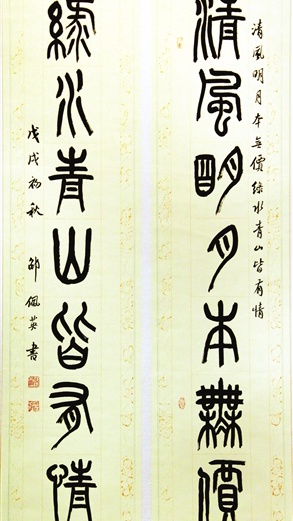 清風明月本無價綠水青山皆有情
清風明月本無價
綠水青山皆有情
戊戌初秋 邵佩英書